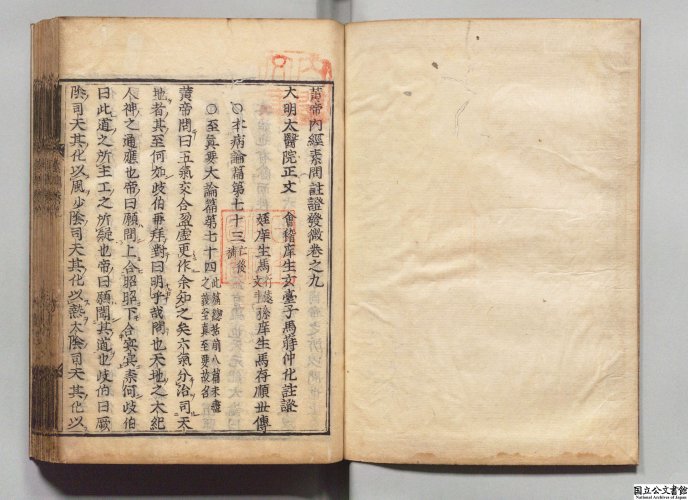 黄帝内經素問註證發微卷之九
大明太醫院正文 會稽庠生玄臺子馬蒔仲化註證
庠生馬 孫庠生馬存順丗傳
○本病論篇第七十三亡後補
○至真要大論篇第七十四此篇總括前八篇未盡之義至真至要故名
黄帝問曰五氣交合盈虚更作余知之矣六氣分治司天
地者其至何如歧伯再拜對曰明乎哉問也天地之大紀
人神之通應也帝曰願聞上合昭昭下合冥冥柰何歧伯
曰此道之所主工之所疑也帝曰願聞其道也歧伯曰厥
陰司天其化以風少陰司天其化以熱太陰司天其化以
国立公文書館
National Archives of Japan